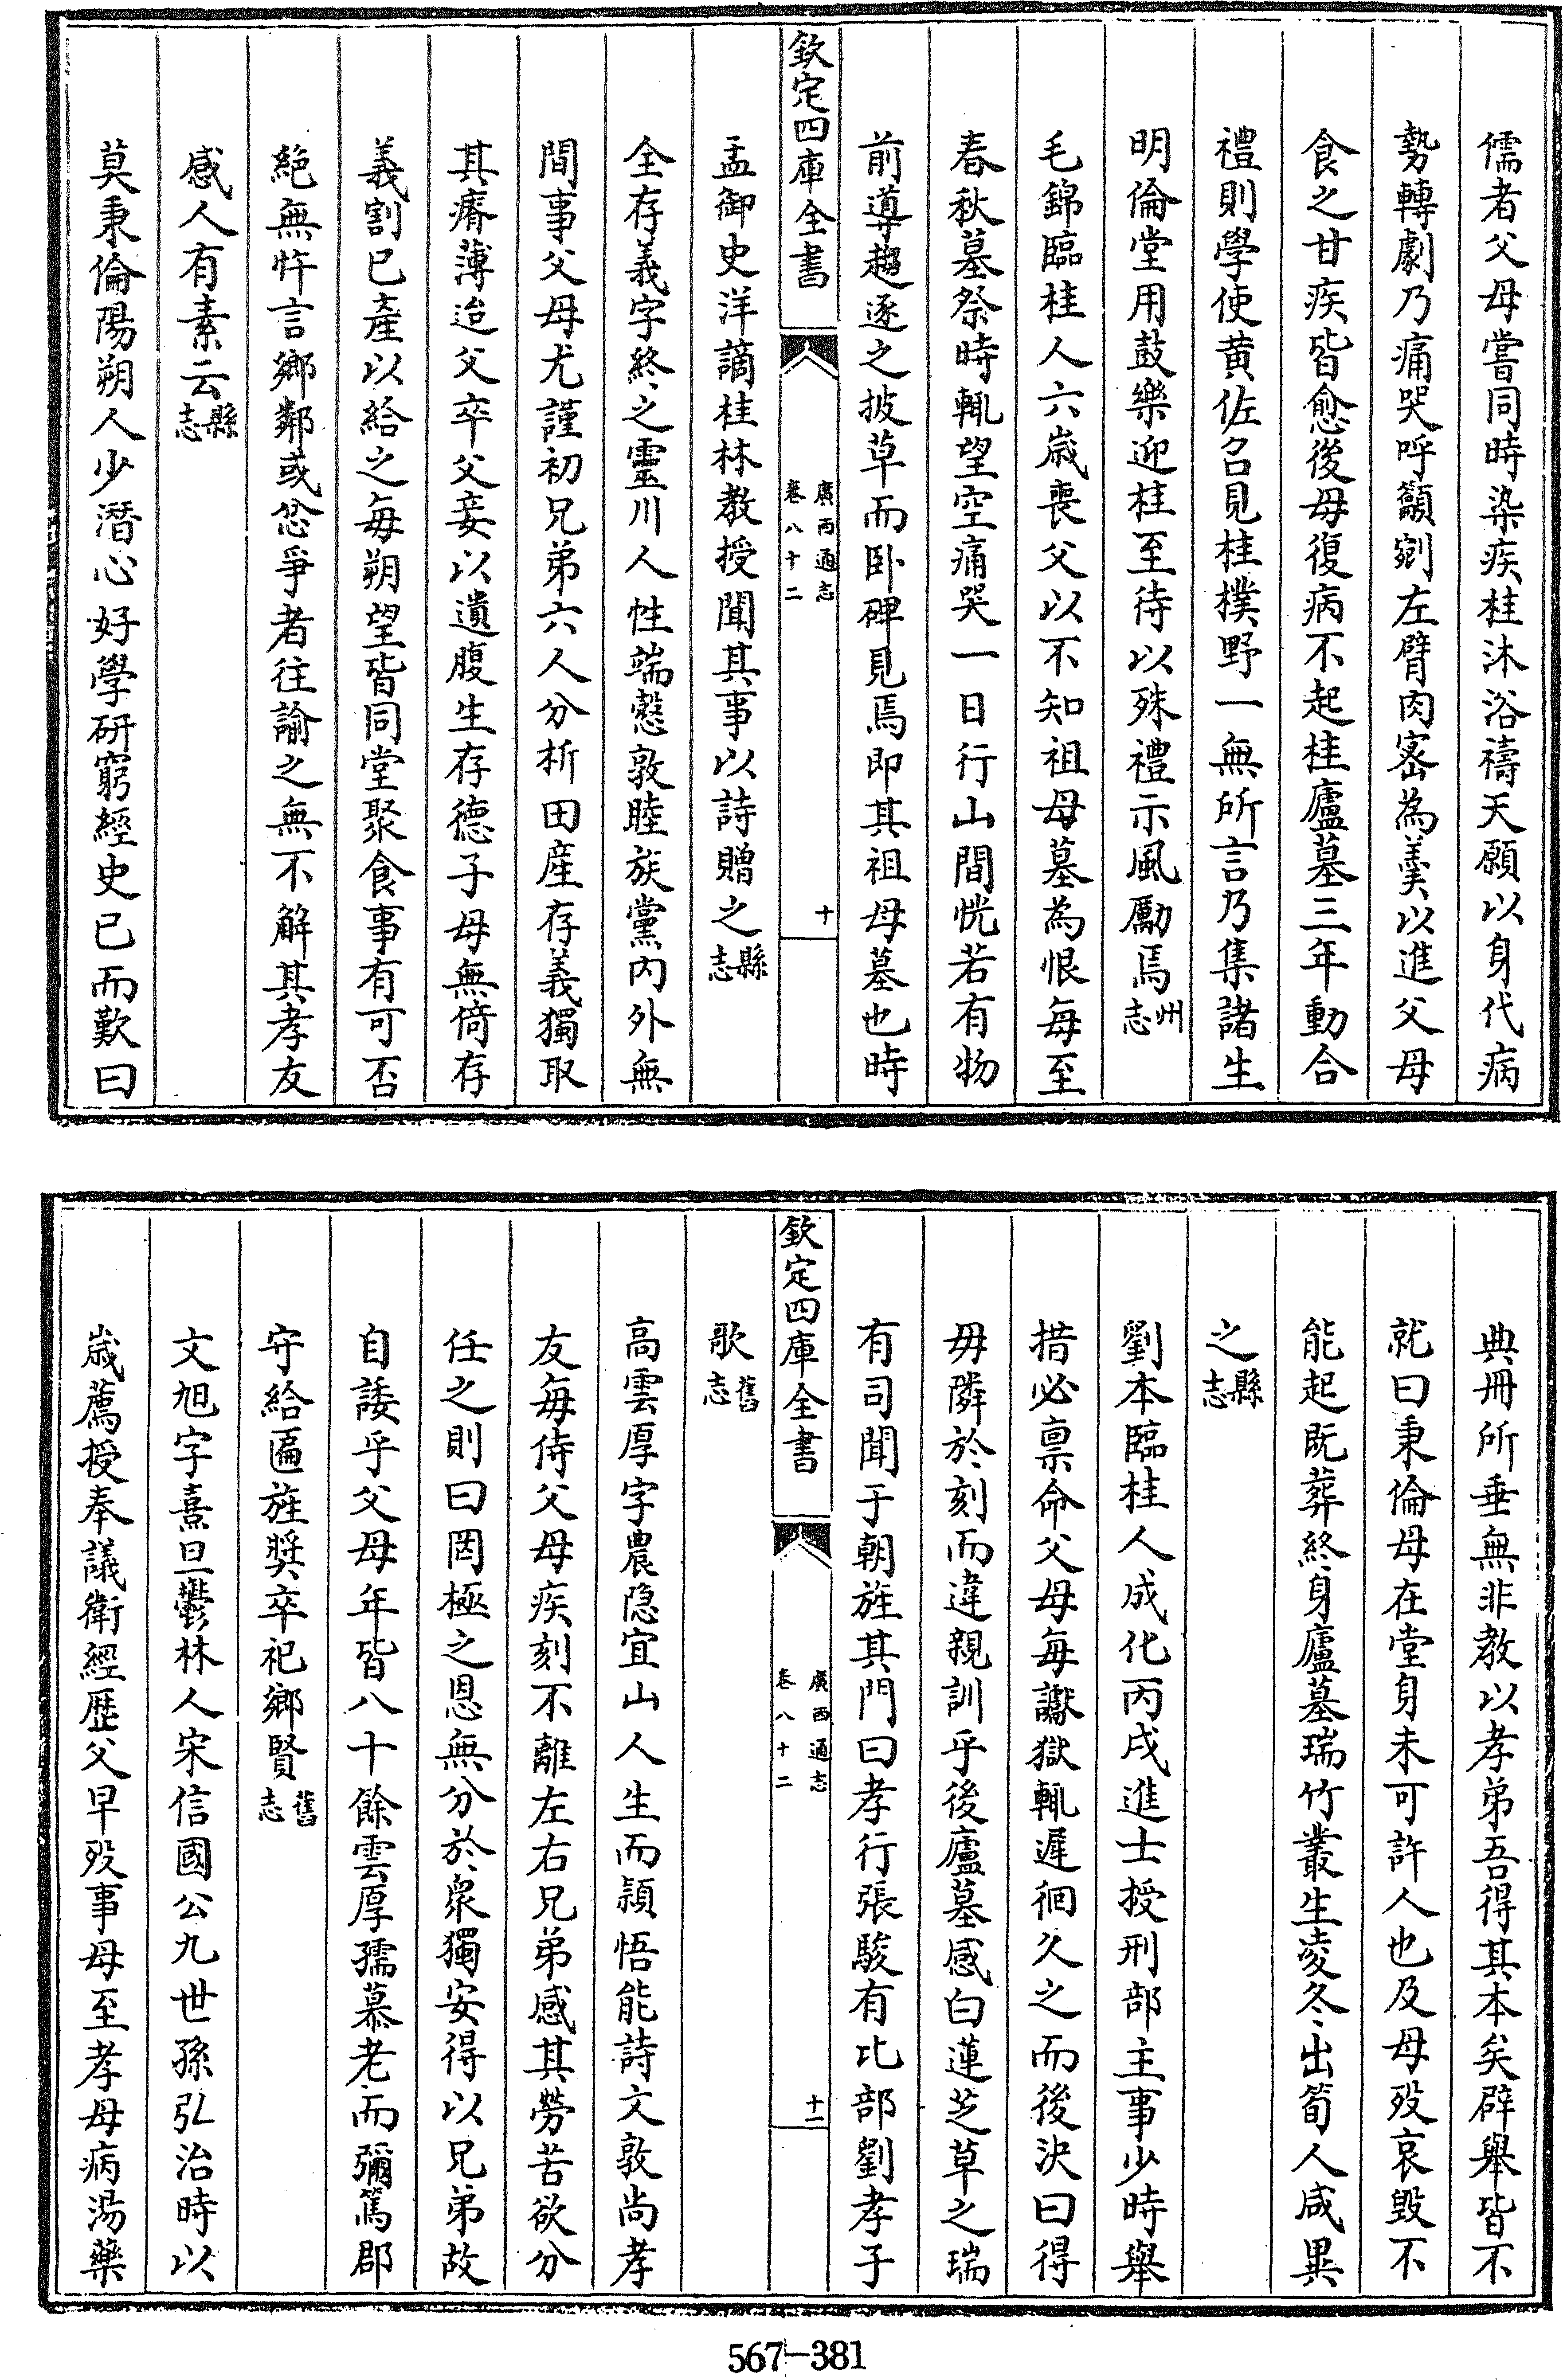 儒者父母嘗同時染疾桂沐浴禱天願以身代病
勢轉劇乃痛哭呼籲剜左臂肉密為羮以進父母
食之甘疾皆愈後母復病不起桂廬墓三年動合
禮則學使黄佐召見桂樸野一無所言乃集諸生
明倫堂用鼓樂迎桂至待以殊禮示風勵焉州志
毛錦臨桂人六歲喪父以不知祖母墓為恨每至
春秋墓祭時輒望空痛哭一日行山間恍若有物
前導趨逐之披草而卧碑見焉即其祖母墓也時
欽定四庫全書
廣西通志
卷八十二
十
孟御史洋謫桂林教授聞其事以詩贈之縣志
全存義字終之靈川人性端慤敦睦族黨内外無
間事父母尤謹初兄弟六人分析田産存義獨取
其瘠薄迨父卒父妾以遺腹生存德子母無倚存
義割已產以給之每朔望皆同堂聚食事有可否
絶無忤言鄉鄰或忿爭者往諭之無不解其孝友
感人有素云縣志
莫秉倫陽朔人少潛心好學研窮經史已而歎曰
典冊所垂無非教以孝弟吾得其本矣辟舉皆不
就曰秉倫母在堂身未可許人也及母歿哀毀不
能起既葬終身廬墓瑞竹叢生凌冬出筍人咸異
之縣志
劉本臨桂人成化丙戌進士授刑部主事少時舉
措必禀命父母每讞獄輒遲徊久之而後決曰得
毋隣於刻而違親訓乎後廬墓感白蓮芝草之瑞
有司聞于朝旌其門曰孝行張駿有比部劉孝子
欽定四庫全書
廣西通志
卷八十二
十一
歌舊志
高雲厚字農隐宜山人生而頴悟能詩文敦尚孝
友每侍父母疾刻不離左右兄弟感其勞苦欲分
任之則曰罔極之恩無分於衆獨安得以兄弟故
自諉乎父母年皆八十餘雲厚孺慕老而彌篤郡
守給匾旌奬卒祀鄉賢舊志
文旭字熹旦鬱林人宋信國公九世孫弘治時以
歲薦授奉議衛經歴父早歿事母至孝母病湯藥
567-381